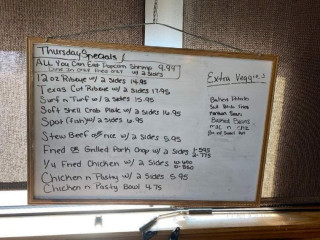 Thursday Specials!
ALL You Can Eat Popcorn Shrimp 9.99
Dine In Only Fries only w/ 2 sides
12 oz Ribeye w/ 2 sides 14.95
Texas Cut Ribeye w/ 2 sides 17.95
Surf n Turf w/ 2 sides 15.95
Soft Shell Crab Plate w/ 2 sides 16.95
Spot (Fish) w/ 2 sides 6.95
Stew Beef on rice w/ 2 sides 5.95
Fried or Grilled Pork Chop w/ 2 sides 1-5.95
2-7.75
Yu Fried Chicken w/ 2 sides
Chicken n Pastry w/ 2 sides 5.95
Chicken n Pastry Bowl 4.75
Extra Veggies
Baked Potato
Baked Beans
mac n cheese